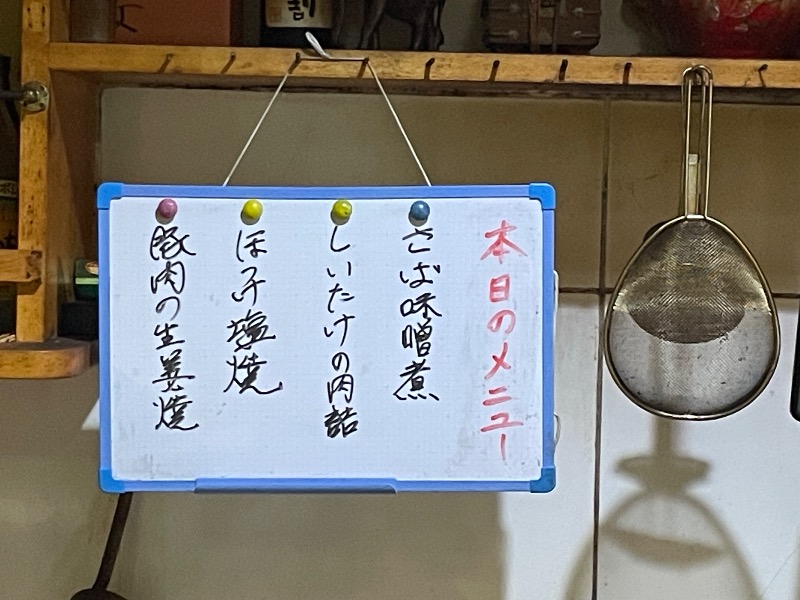 本日のメニュー
さば味噌煮
しいたけの肉詰
ほっけ塩焼
豚肉の生姜焼